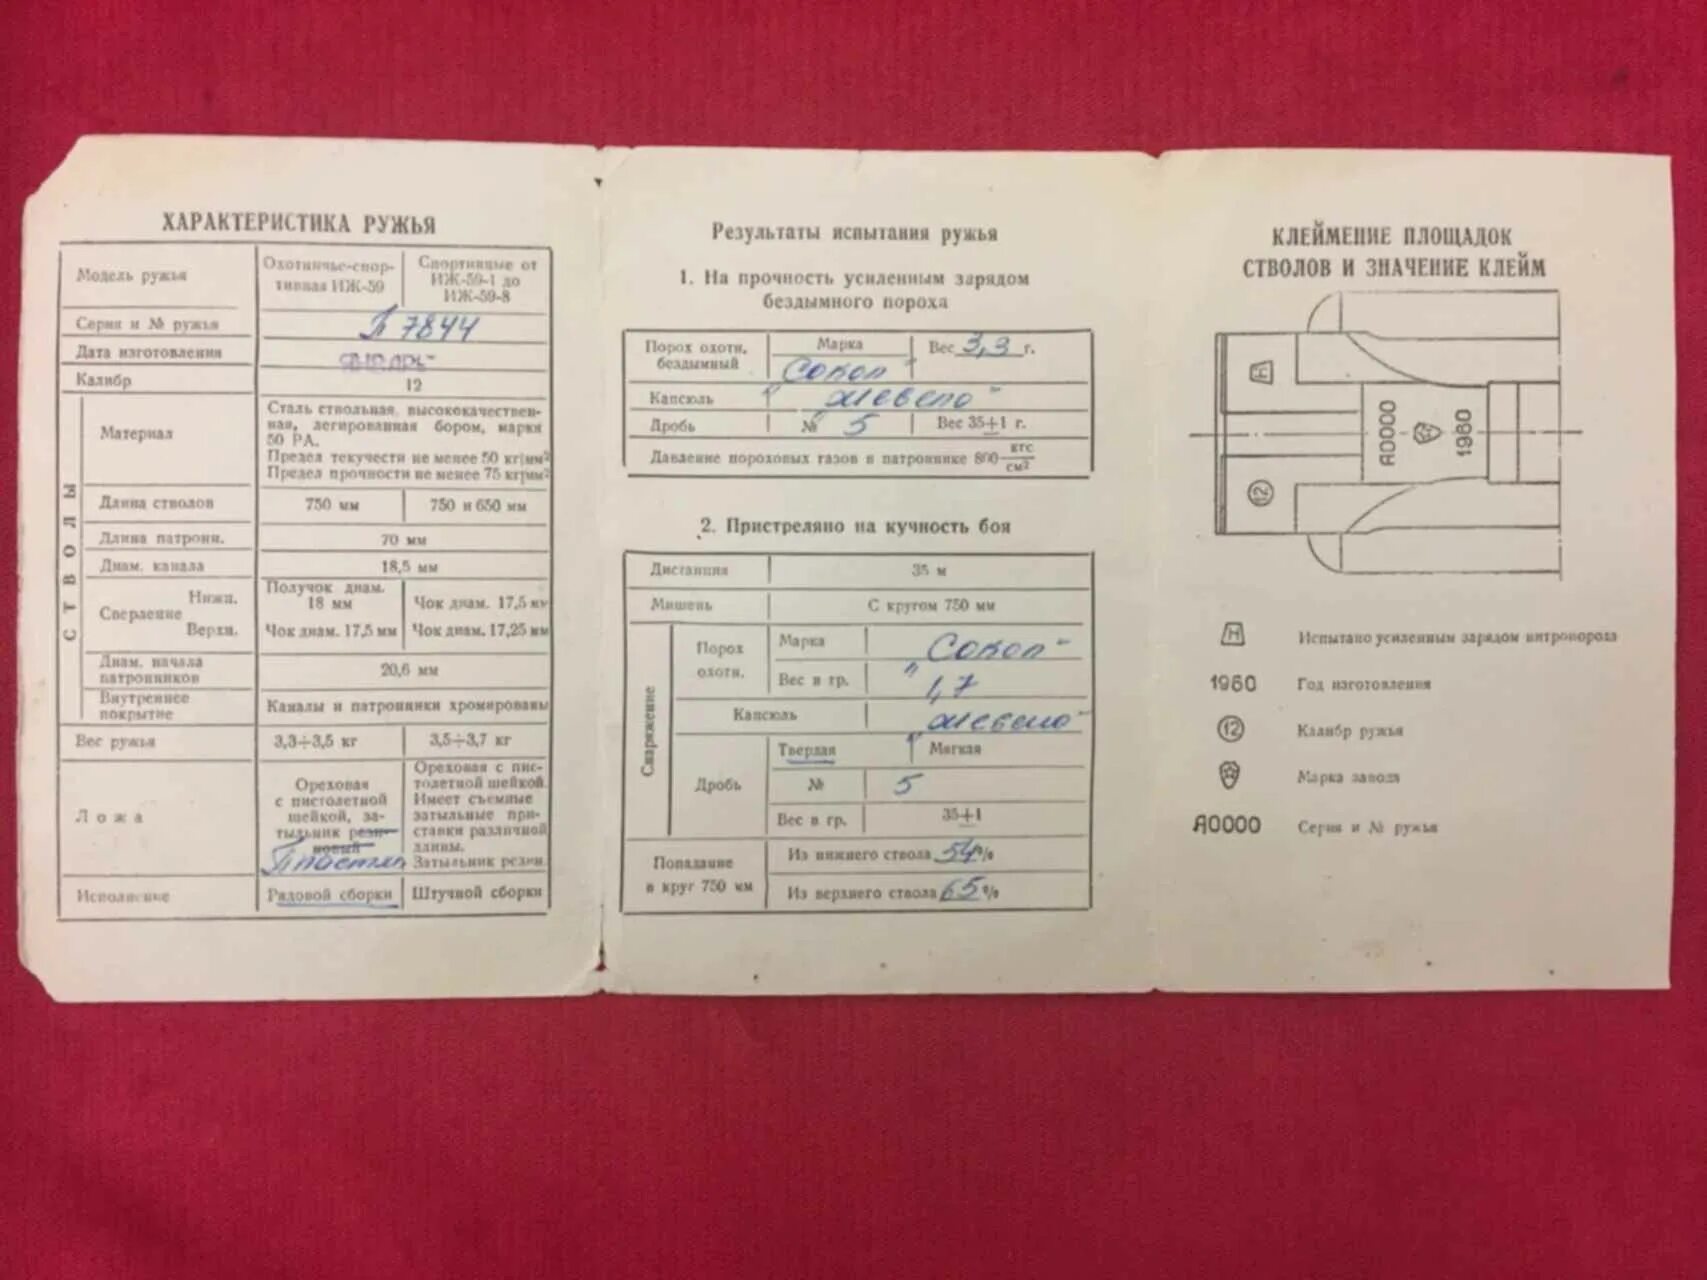 ХАРАКТЕРИСТИКА РУЖЬЯ
Модель ружья
Охотничье-спор-
тивная ИЖ-59
Спортивные от
ИЖ-59-1 до
ИЖ-59-8
Серия и № ружья
7844
Дата изготовления
Калибр
12
СТВОЛЫ
Материал
Сталь ствольная, высококачествен-
ная, легированная бором, марки
50 РА.
Предел текучести не менее 50 кг|мм²
Предел прочности не менее 75 кг|мм²
Длина стволов
750 мм
750 и 650 мм
Длина патронн.
70 мм
Диам. канала
18,5 мм
Сверление
Нижн.
Получок диам.
18 мм
Чок диам. 17,5 мм
Верхн.
Чок диам. 17,5 мм
Чок диам. 17,25 мм
Диам. начала
патронников
20,6 мм
Внутреннее
покрытие
Каналы и патронники хромированы
Вес ружья
3,3÷3,5 кг
3,5÷3,7 кг
Ложа
Ореховая
с пистолетной
шейкой, за-
тыльник рези-
новый
Ореховая с пис-
толетной шейкой.
Имеет съемные
затыльные при-
ставки различной
длины.
Затыльник резин.
Исполнение
Рядовой сборки
Штучной сборки
Результаты испытания ружья
1. На прочность усиленным зарядом
бездымного пороха
Порох охотн.
бездымный
Марка
"Сокол"
Вес 3,3 г.
Капсюль
"Жевело"
Дробь
№ 5
Вес 35±1 г.
Давление пороховых газов в патроннике 800 кгс/см²
2. Пристреляно на кучность боя
Дистанция
35 м
Мишень
С кругом 750 мм
Снаряжение
Порох
охотн.
Марка
"Сокол"
Вес в гр.
1,7
Капсюль
"Жевело"
Дробь
Твердая
Мягкая
№
5
Вес в гр.
35±1
Попадание
в круг 750 мм
Из нижнего ствола 54%
Из верхнего ствола 65%
КЛЕЙМЕНИЕ ПЛОЩАДОК
СТВОЛОВ И ЗНАЧЕНИЕ КЛЕЙМ
Н
12
А0000
1960
Н
Испытано усиленным зарядом нитропороха
1960
Год изготовления
12
Калибр ружья
Марка завода
А0000
Серия и № ружья